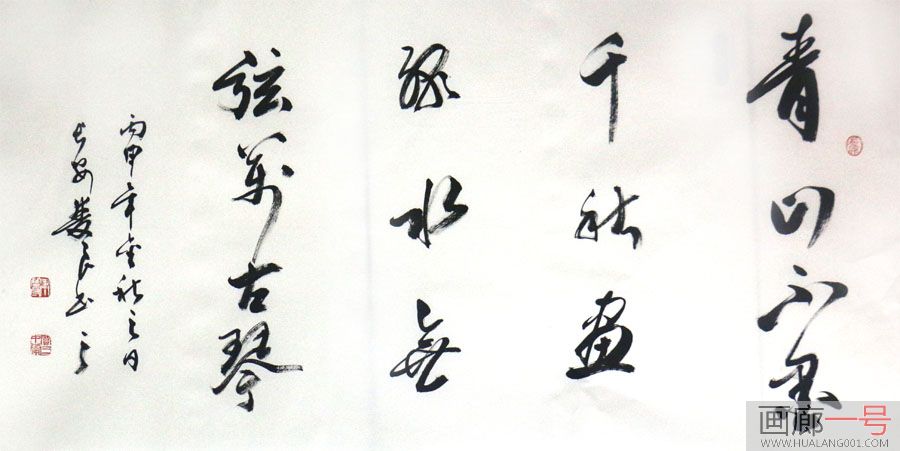 青山不墨
千秋畫
綠水無
弦萬古琴
丙申年金秋之日
長安良
画廊一号
WWW.HUALANG001.COM